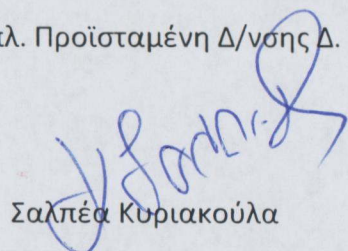 πλ. Προϊσταμένη Δ/νσης Δ.
Σαλπέα Κυριακούλα